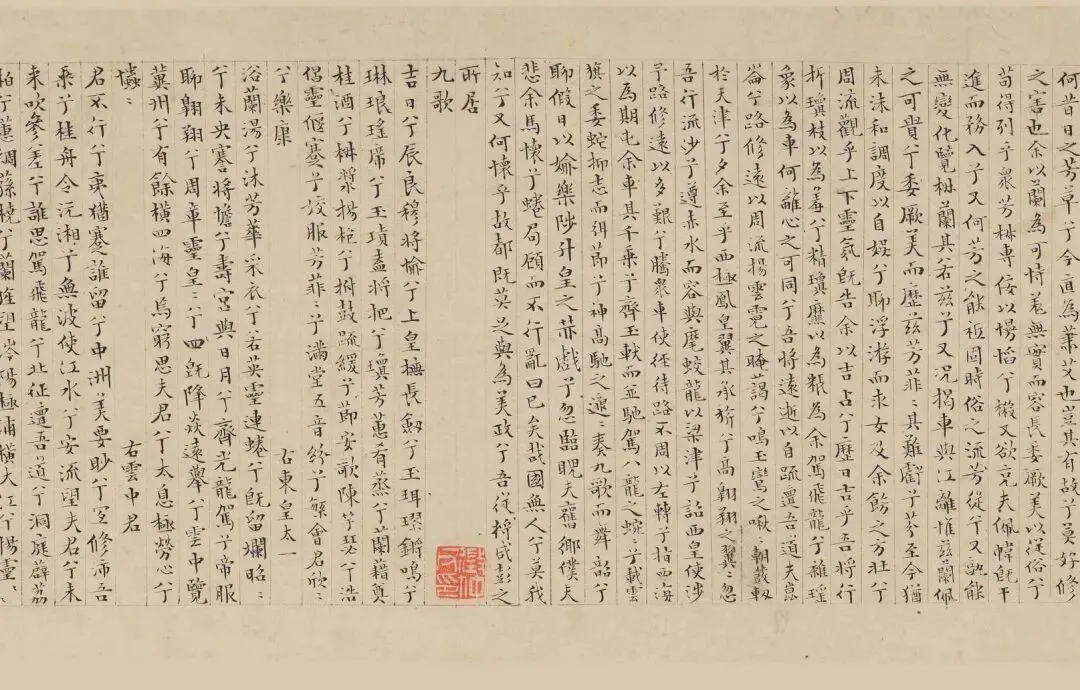 何昔日之芳草兮今直為蕭艾也豈其有故兮莫好修
之害也余以蘭為可恃羌無實而容長委厥美以從俗兮
苟得列乎衆芳椒專佞以慢慆兮樧又欲充夫佩幃既干
進而務入兮又何芳之能祗固時俗之流芳從兮又孰能
無變化覽椒蘭其若兹兮又况揭車與江離惟兹蘭佩
之可貴兮委厥美而歷兹芳菲〻其難虧兮芬至今猶
未沬和調度以自娛兮聊浮游而求女及余飾之方壯兮
周流觀乎上下靈氛既告余以吉占兮歷日吉乎吾將行
折瓊枝以為羞兮精瓊爢以為粻為余駕飛龍兮雜瑤
象以為車何離心之可同兮吾將遠逝以自疏邅吾道夫崑
崙兮路修遠以周流揚雲霓之晻藹兮鳴玉鸞之啾〻朝發軔
於天津兮夕余至乎西極鳳皇翼其承旂兮高翱翔之翼〻忽
吾行流沙兮遵赤水而容與麾蛟龍以梁津兮詔西皇使涉
予路修遠以多艱兮騰衆車使徑待路不周以左轉兮指西海
以為期屯余車其千乘兮齊玉軑而並馳駕八龍之蜿〻兮載雲
旗之委蛇抑志而弭節兮神高馳之邈〻奏九歌而舞韶兮
聊假日以媮樂陟升皇之赫戲兮忽臨睨夫舊鄉僕夫
悲余馬懷兮蜷局顧而不行亂曰已矣哉國無人兮莫我
知兮又何懷乎故都既莫足與為美政兮吾從將咸彭之
所居
九歌
吉日兮辰良穆將愉兮上皇撫長劍兮玉珥璆鏘鳴兮
琳琅瑤席兮玉瑱盍將把兮瓊芳蕙肴蒸兮蘭藉奠
桂酒兮椒漿揚枹兮拊鼓疏緩兮節安歌陳竽瑟兮浩
倡靈偃蹇兮姣服芳菲〻兮滿堂五音紛兮繁會君欣〻
兮樂康 右東皇太一
浴蘭湯兮沐芳華采衣兮若英靈連蜷兮既留爛昭〻
兮未央蹇將憺兮壽宮與日月兮齊光龍駕兮帝服
聊翱翔兮周章靈皇〻兮四既降猋遠舉兮雲中覽
冀州兮有餘橫四海兮焉窮思夫君兮太息極勞心兮
〻 右雲中君
君不行兮夷猶蹇誰留兮中洲美要眇兮宜修沛吾
乘兮桂舟令沅湘兮無波使江水兮安流望夫君兮未
來吹參差兮誰思駕飛龍兮北征邅吾道兮洞庭薜荔
柏兮蕙綢蓀橈兮蘭旌望涔陽極浦橫大江兮揚靈〻